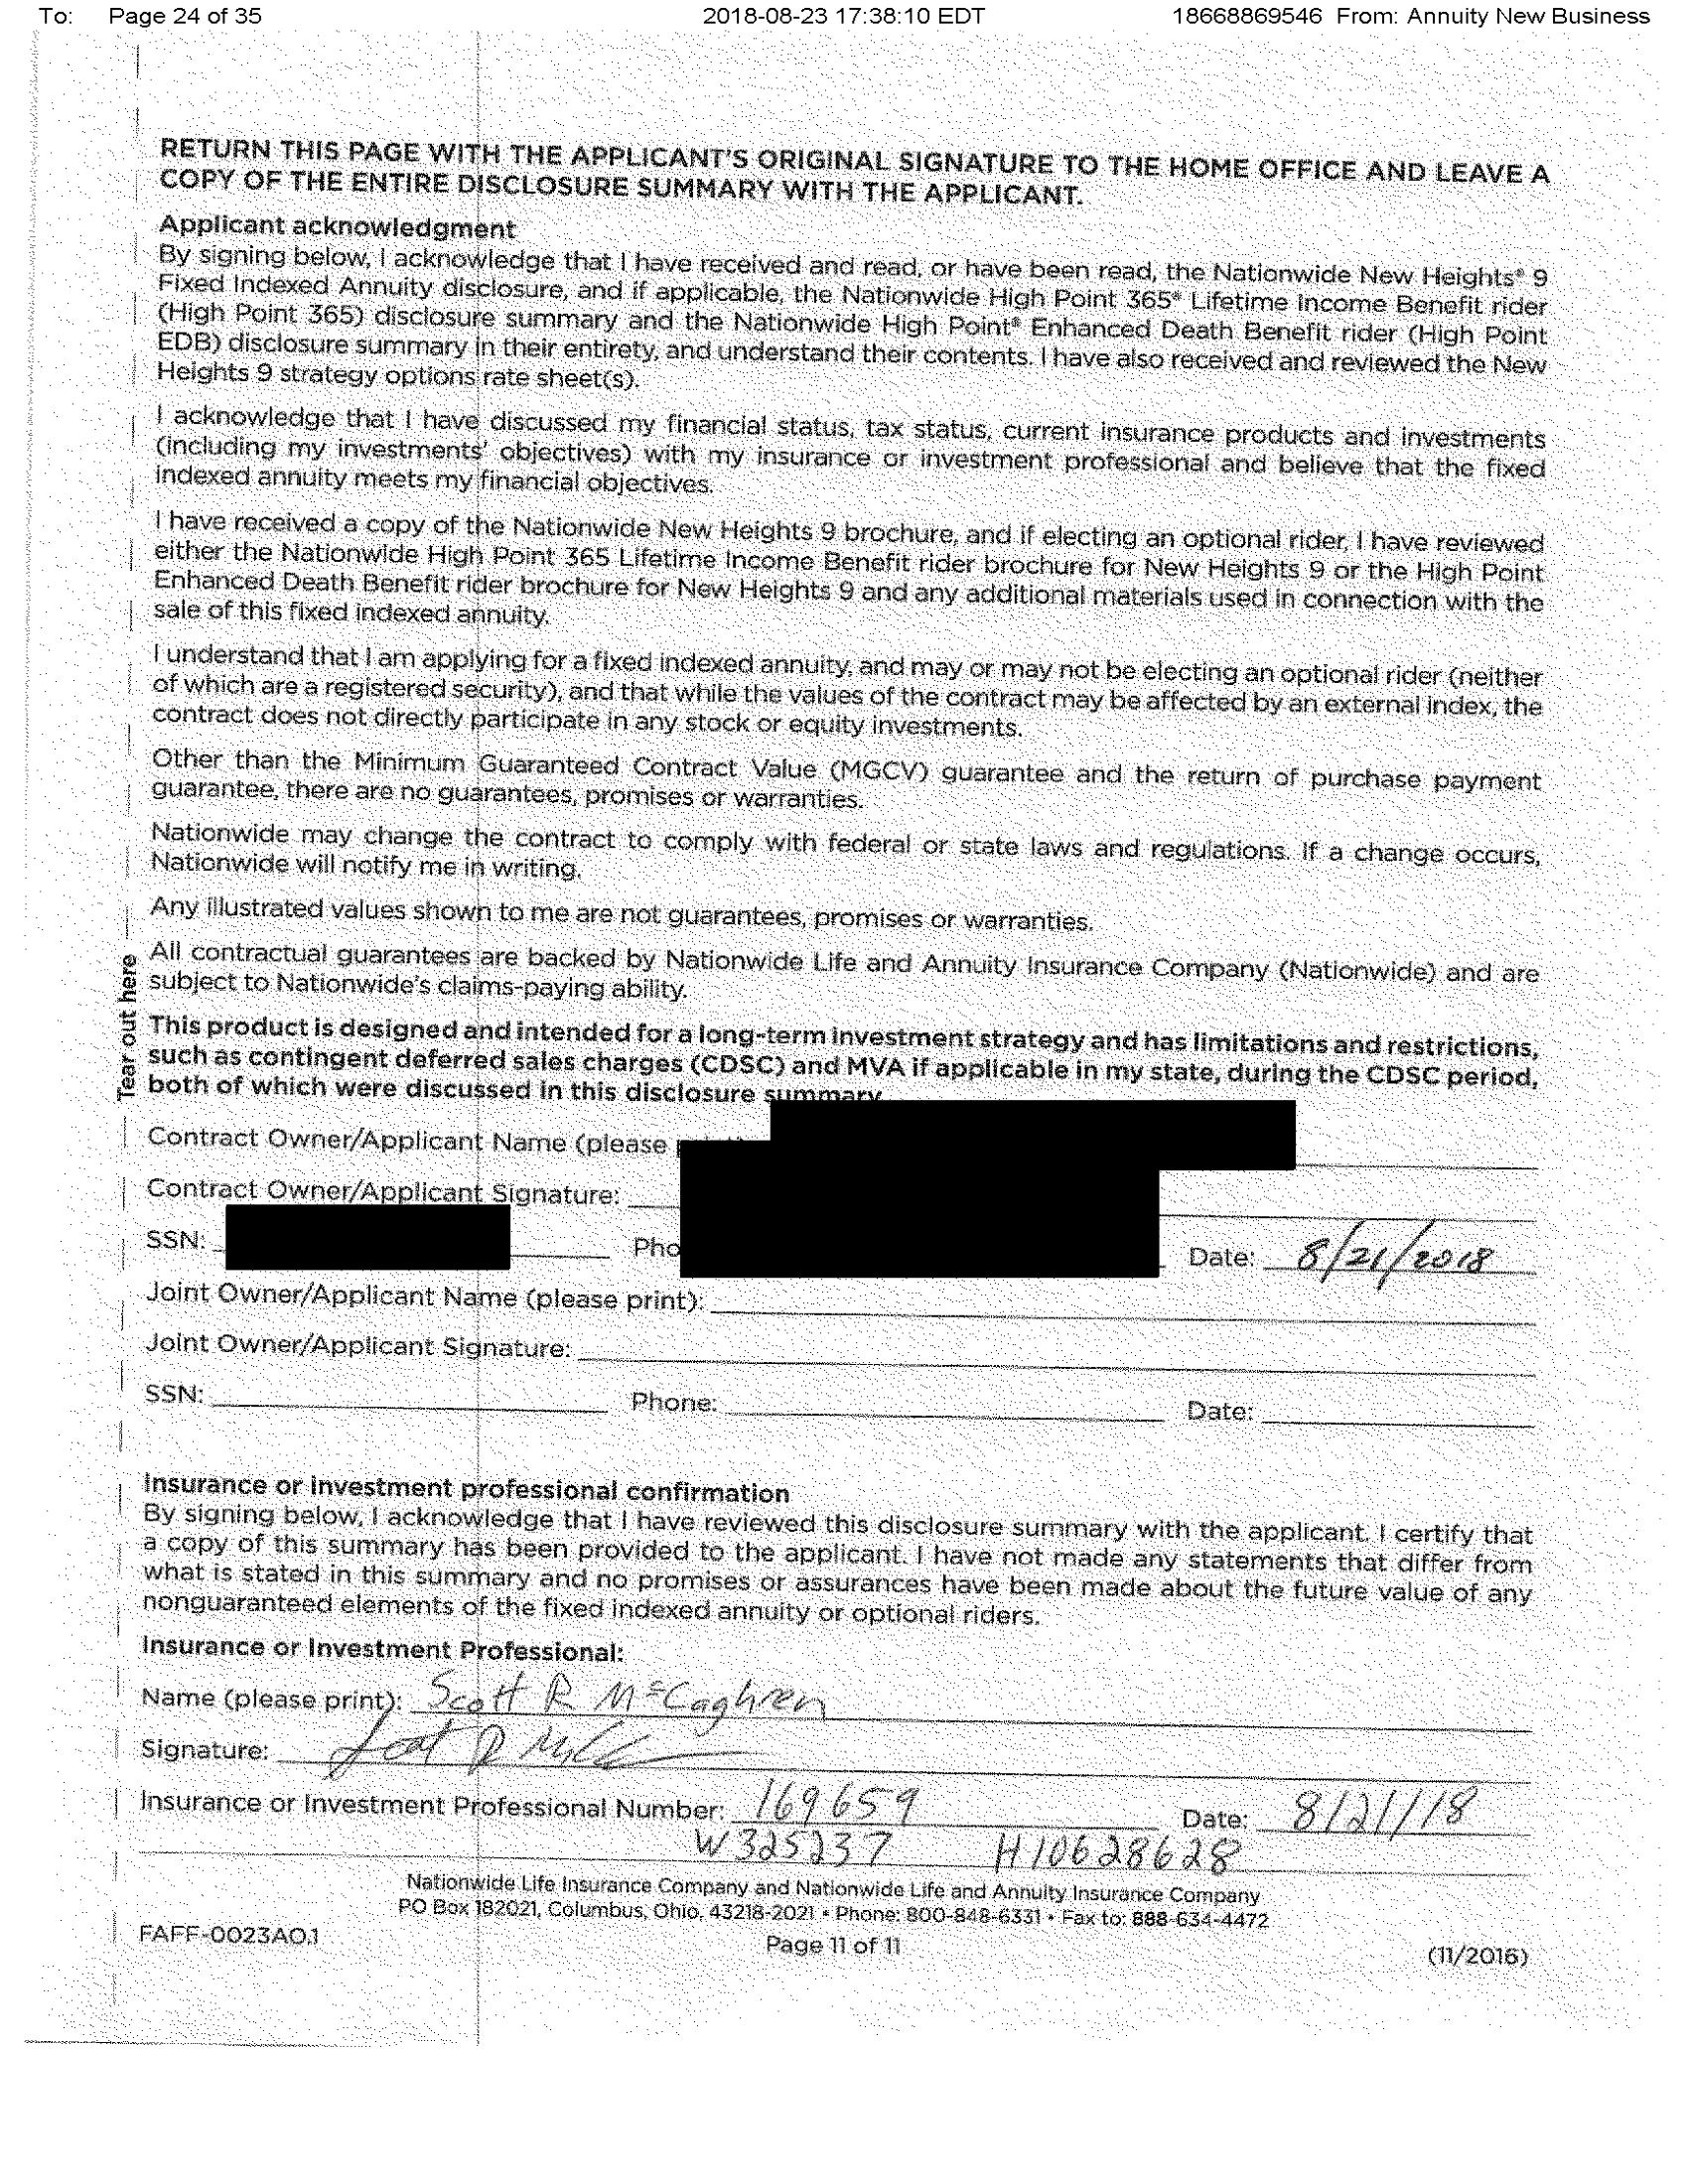 To: Page 24 of 35 2018-08-23 17:38:10 EDT 18668869546 From: Annuity New Business
RETURN THIS PAGE WITH THE APPLICANT'S ORIGINAL SIGNATURE TO THE HOME OFFICE AND LEAVE A
COPY OF THE ENTIRE DISCLOSURE SUMMARY WITH THE APPLICANT.
Applicant acknowledgment
By signing below, I acknowledge that I have received and read, or have been read, the Nationwide New Heights® 9
Fixed Indexed Annuity disclosure, and if applicable, the Nationwide High Point 365® Lifetime Income Benefit rider
(High Point 365) disclosure summary and the Nationwide High Point® Enhanced Death Benefit rider (High Point
EDB) disclosure summary in their entirety, and understand their contents. I have also received and reviewed the New
Heights 9 strategy options rate sheet(s).
I acknowledge that I have discussed my financial status, tax status, current insurance products and investments
(including my investments' objectives) with my insurance or investment professional and believe that the fixed
indexed annuity meets my financial objectives.
I have received a copy of the Nationwide New Heights 9 brochure, and if electing an optional rider, I have reviewed
either the Nationwide High Point 365 Lifetime Income Benefit rider brochure for New Heights 9 or the High Point
Enhanced Death Benefit rider brochure for New Heights 9 and any additional materials used in connection with the
sale of this fixed indexed annuity.
I understand that I am applying for a fixed indexed annuity, and may or may not be electing an optional rider (neither
of which are a registered security), and that while the values of the contract may be affected by an external index, the
contract does not directly participate in any stock or equity investments.
Other than the Minimum Guaranteed Contract Value (MGCV) guarantee and the return of purchase payment
guarantee, there are no guarantees, promises or warranties.
Nationwide may change the contract to comply with federal or state laws and regulations. If a change occurs,
Nationwide will notify me in writing.
Any illustrated values shown to me are not guarantees, promises or warranties.
All contractual guarantees are backed by Nationwide Life and Annuity Insurance Company (Nationwide) and are
subject to Nationwide's claims-paying ability.
Tear out here
This product is designed and intended for a long-term investment strategy and has limitations and restrictions,
such as contingent deferred sales charges (CDSC) and MVA if applicable in my state, during the CDSC period,
both of which were discussed in this disclosure summary
Contract Owner/Applicant Name (please
Contract Owner/Applicant Signature:
SSN: Pho Date: 8/21/2018
Joint Owner/Applicant Name (please print):
Joint Owner/Applicant Signature:
SSN: Phone: Date:
Insurance or investment professional confirmation
By signing below, I acknowledge that I have reviewed this disclosure summary with the applicant. I certify that
a copy of this summary has been provided to the applicant. I have not made any statements that differ from
what is stated in this summary and no promises or assurances have been made about the future value of any
nonguaranteed elements of the fixed indexed annuity or optional riders.
Insurance or Investment Professional:
Name (please print): Scott R McCaghren
Signature:
Insurance or Investment Professional Number: 169659 Date: 8/21/18
W325237 H10628628
Nationwide Life Insurance Company and Nationwide Life and Annuity Insurance Company
PO Box 182021, Columbus, Ohio, 43218-2021 • Phone: 800-848-6331 • Fax to: 888-634-4472
FAFF-0023AO.1 Page 11 of 11 (11/2016)